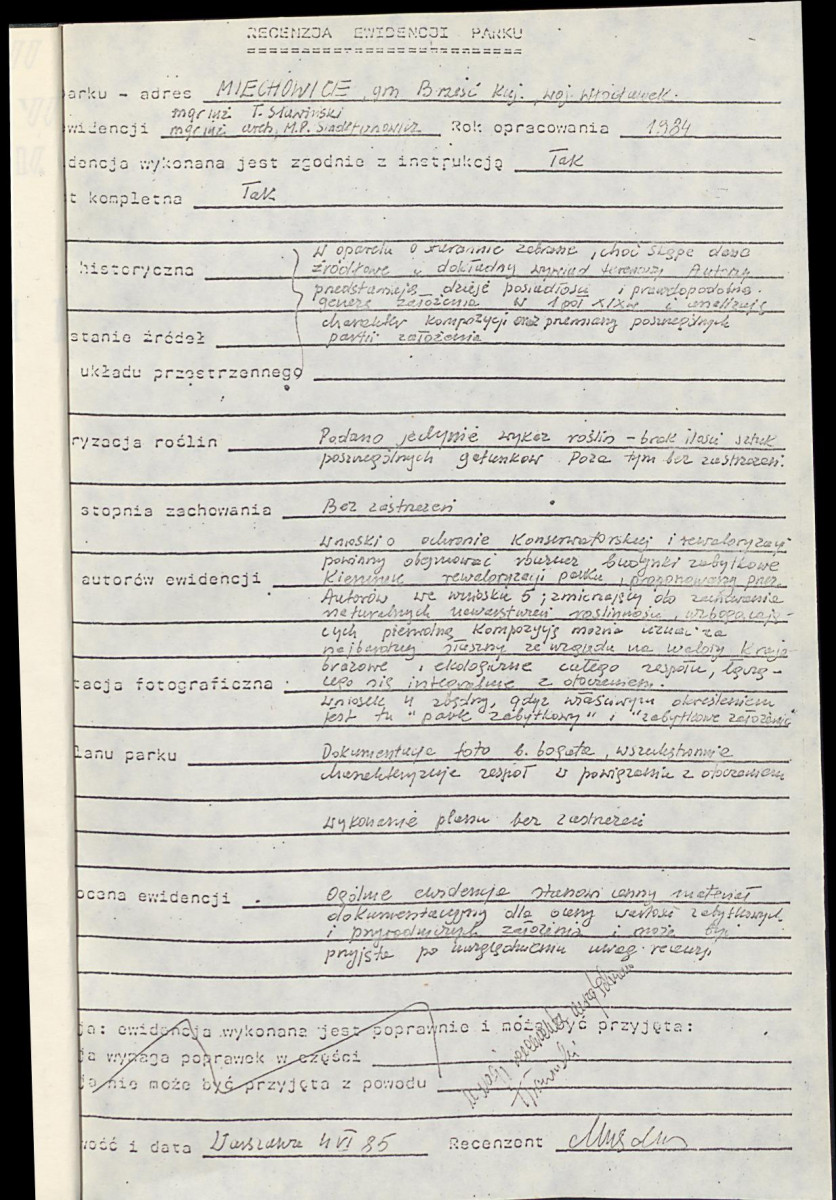 RECENZJA EWIDENCJI PARKU
arku - adres MIECHOWICE, gm Brześć Kuj. woj. Włocławek.
mgr inż T. Sławiński
widencji mgr inż arch. M.P. Rok opracowania 1984
dencja wykonana jest zgodnie z instrukcją Tak
t kompletna Tak
W oparciu o starannie zebrane, choć skąpe dane
historyczna źródłowe i dokładny wywiad terenowy Autorzy
przedstawiają dzieje posiadłości i prawdopodobną
genezę założenia w 1 poł XIXw i analizują
charakter kompozycji oraz przemiany poszczególnych
stanie źródeł partii założenia
układu przestrzennego
ryzacja roślin Podano jedynie wykaz roślin - brak ilości sztuk
poszczególnych gatunków. Poza tym bez zastrzeżeń.
stopnia zachowania Bez zastrzeżeń
Wnioski o ochronie Konserwatorskiej i rewaloryzacji
powinny obejmować również budynki zabytkowe
autorów ewidencji Kierunek rewaloryzacji parku, proponowany przez
Autorów we wniosku 5; zmierzający do zachowania
naturalnych nawarstwień roślinności, wzbogacają-
cych pierwotną kompozycję można uznać za
najbardziej słuszny ze względu na walory Krajo-
brazowe i ekologiczne całego zespołu, łączą-
tacja fotograficzna cego się integralnie z otoczeniem.
Wniosek 4 zbędny, gdyż właściwym określeniem
jest tu "park zabytkowy" i "zabytkowe założenie"
lanu parku Dokumentacja foto b. bogata, wszechstronnie
charakteryzuje zespół w powiązaniu z otoczeniem
Wykonanie planu bez zastrzeżeń
ocena ewidencji Ogólnie ewidencja stanowi cenny materiał
dokumentacyjny dla oceny wartości zabytkowych
i przyrodniczych założenia i może być
przyjęta po uwzględnieniu uwag recenzji
ja: ewidencja wykonana jest poprawnie i może być przyjęta:
ja wymaga poprawek w części
ja nie może być przyjęta z powodu
wość i data Warszawa 4 VI 85 Recenzent